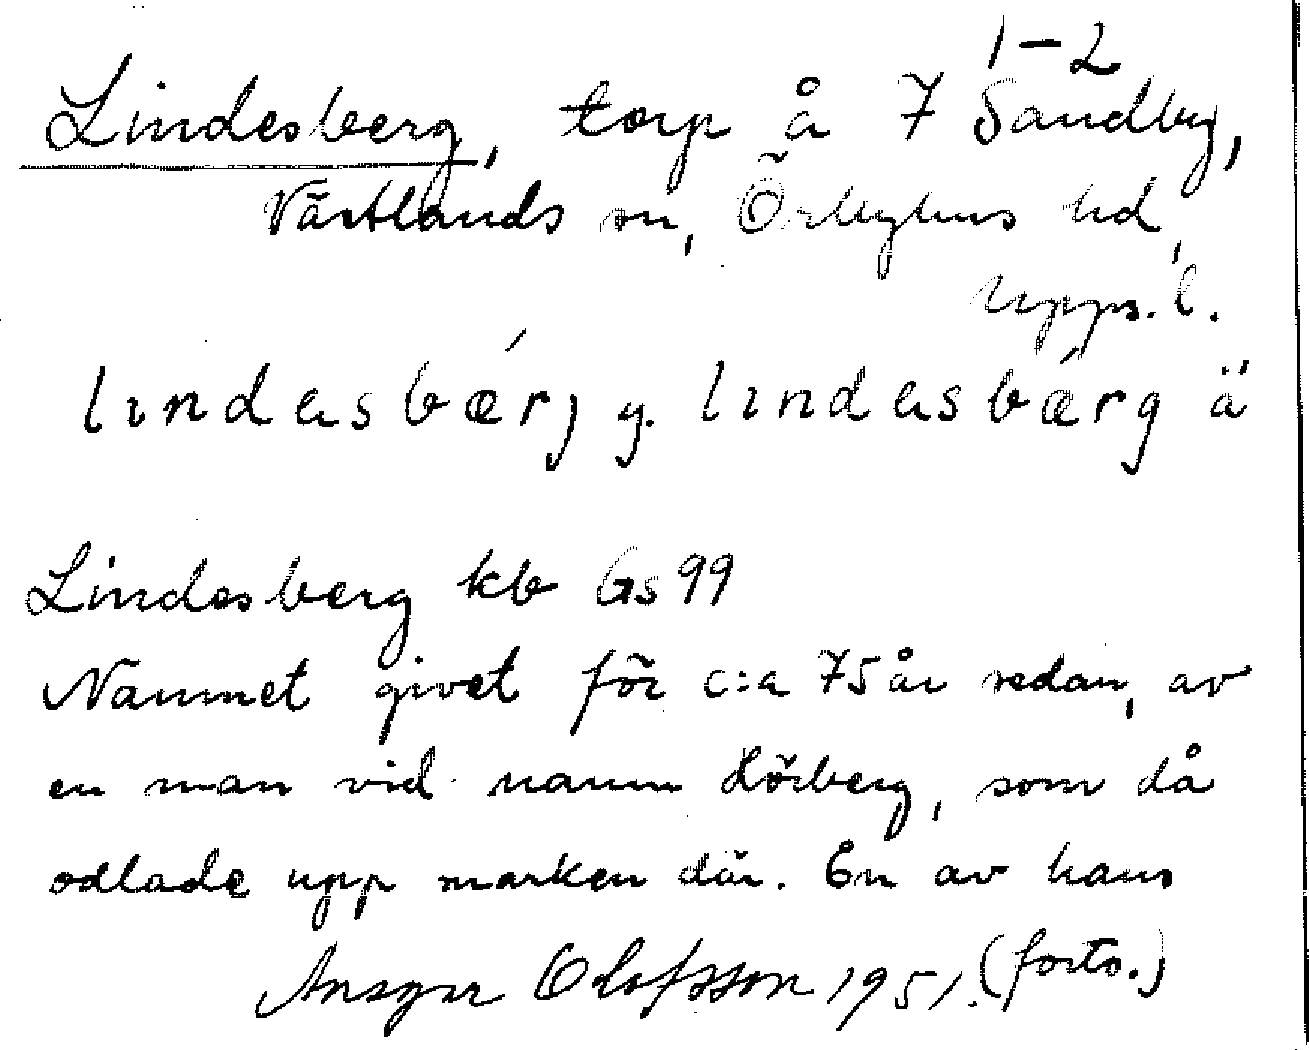 1-2
Lindesberg, torp å 7 Sandby,
Västlands sn, Örbyhus hd,
Upps. l.
lındasbǽrj y. lındasbǽrg ä
Lindesberg kb Gs 99
Namnet givet för c:a 75 år sedan, av
en man vid namn Hörberg, som då
odlade upp marken där. En av hans
Ansgar Olofsson 1951. (forts.)